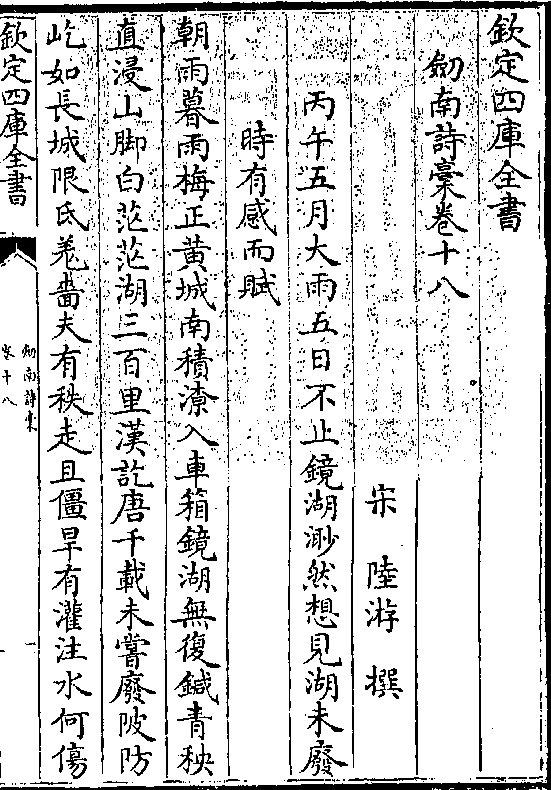 欽定四庫全書
劒南詩稾卷十八
宋　陸游　撰
丙午五月大雨五日不止鏡湖渺然想見湖未廢
時有感而賦
朝雨暮雨梅正黃城南積潦入車箱鏡湖無復鍼青秧
直浸山脚白茫茫湖三百里漢訖唐千載未嘗廢陂防
屹如長城限氐羌嗇夫有秩走且僵旱有灌注水何傷
欽定四庫全書
劒南詩稾
卷十八
一